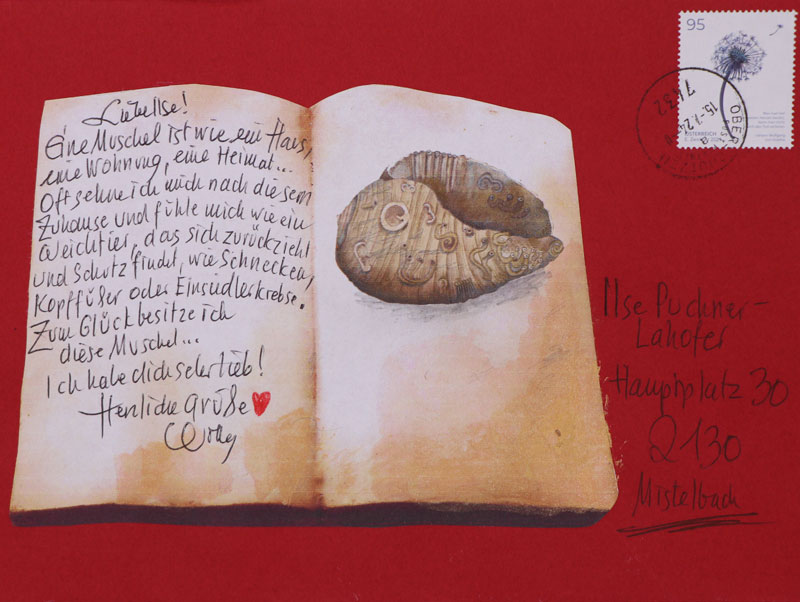 Liebe Ilse!
Eine Muschel ist wie ein Haus,
eine Wohnung, eine Heimat...
Oft sehne ich mich nach diesem
Zuhause und fühle mich wie ein
Weichtier, das sich zurückzieht
und Schutz findet, wie Schnecken,
Kopffüßer oder Einsiedlerkrebse.
Zum Glück besitze ich
diese Muschel...
Ich habe dich sehr lieb!
Herzliche Grüße
95
7432
OBER
ÖSTERREICH
Ilse Puchner-
Lahofer
Hauptplatz 30
2130
Mistelbach